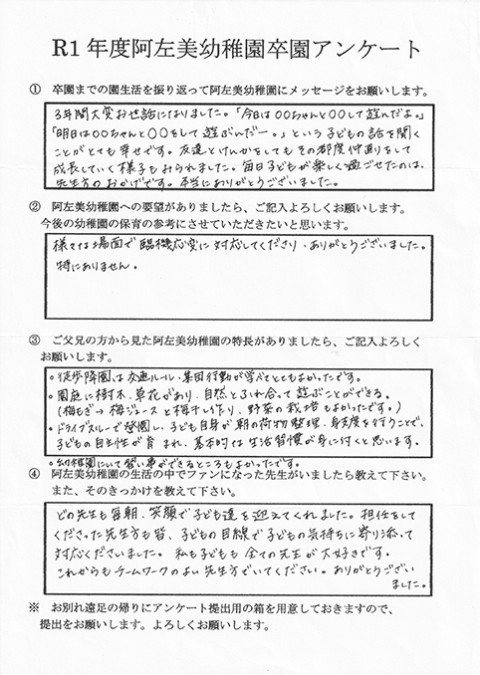 R1年度阿左美幼稚園卒園アンケート
① 卒園までの園生活を振り返って阿左美幼稚園にメッセージをお願いします。
3年間大変お世話になりました。「今日は〇〇ちゃんと〇〇して遊んだよ。」
「明日は〇〇ちゃんと〇〇をして遊ぶんだー。」という子どもの話を聞く
ことがとても幸せです。友達とけんかをしてもその都度仲直りをして
成長していく様子もみられました。毎日子どもが楽しく過ごせたのは、
先生方のおかげです。本当にありがとうございました。
② 阿左美幼稚園への要望がありましたら、ご記入よろしくお願いします。
今後の幼稚園の保育の参考にさせていただきたいと思います。
様々な場面で臨機応変に対応してくださり、ありがとうございました。
特にありません。
③ ご父兄の方から見た阿左美幼稚園の特長がありましたら、ご記入よろしく
お願いします。
○徒歩降園は交通ルール、集団行動が学べてとてもよかったです。
○園庭に樹木、草花があり、自然とふれ合って遊ぶことができる。
(梅もぎ→梅ジュースと梅干し作り、野菜の栽培もよかったです。)
○ドライブスルーで登園し、子ども自身が朝の荷物整理、身支度を行うことで、
子どもの自主性が育まれ、基本的な生活習慣が身に付くと思います。
○幼稚園にいて習い事ができるところもよかったです。
④ 阿左美幼稚園の生活の中でファンになった先生がいましたら教えて下さい。
また、そのきっかけを教えて下さい。
どの先生も毎朝、笑顔で子ども達を迎えてくれました。担任をして
くださった先生方も皆、子どもの目線で子どもの気持ちに寄り添って
対応くださいました。私も子どもも全ての先生が大好きです。
これからもチームワークのよい先生方でいてください。ありがとうござい
ました。
※ お別れ遠足の帰りにアンケート提出用の箱を用意しておきますので、
提出をお願いします。よろしくお願いします。